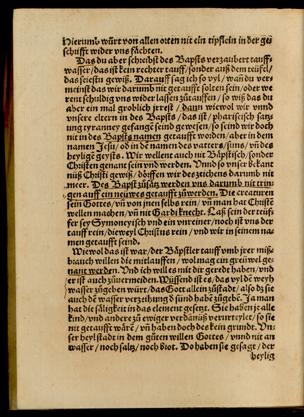 Hierum würt von allen otten nit ein tipflein in der ge
schrifft wider vns fächten.
Das du aber schreibst des Bapsts verzaubert tauff
wasser / das ist kein rechter tauff / sonder auß dem teüfel /
das seiestu gewiß. Darauff sag ich so vyl / wañ du ver
meinst das wir darumb nit getaufft solten sein / oder we
rent schuldig vns wider lassen zůtauffen / so wiß das du
aber ein mal groblich irrst / dann wiewol wir vnnd
vnsere eltern in des Bapsts / das ist / phariseisch satz
ung tyranney gefangẽ seind gewesen / so seind wir doch
nit in des Bapsts namen getaufft worden / aber in dem
namen Jesu / oď in dẽ namen des vatters / suns / vñ des
heylige͂ geysts. Wir wellent auch nit Bäpstisch / sonder
Christen genant sein vnd werden. Vnnd so vnser bekant
nüß Christi gewiß / dörffen wir des zeichens darumb nit
meer. Des Bapst zůsatz werden vns darumb nit trin
gen auff ein neüwes getaufft zůwerden. Die creaturen
sein Gottes / vñ von jnen selbs rein / vñ man hat Christẽ
wellen machen / vñ nit Gardiknecht. Laß sein der teüf
fer sey Symoneysch vnd ein vnreiner / noch ist vns der
tauff rein / dieweyl Christus rein / vnd wir in seinem na
men getaufft seind.
Wiewol das ist war / der Bäpstler tauff vmb jrer miß
brauch willen die mitlauffen / wol mag ein greüwel ge
nant werden. Vnd ich will es mit dir gerede haben / vnd
er ist auch zůuermeiden. Wüssend ist es / das vyl dẽ weyh
wasser zůgeben würt / das Gott allein zůstadt / also dz sie
auch dẽ wasser verzeihung ď sünd habẽ zůgebẽ. Ja man
hat die säligkeit in das element gesetzt. Sie haben je alle
kind / vnd andere zů ewiger verdãnüß verurteylt / so sie
nit getaufft wãrẽ / vñ haben doch des kein grundt. Vn
ser heylstadt in dem gůten willen Gottes / vnnd nit an
wasser / noch saltz / noch brot. Do haben sie gesagt / der
heylig